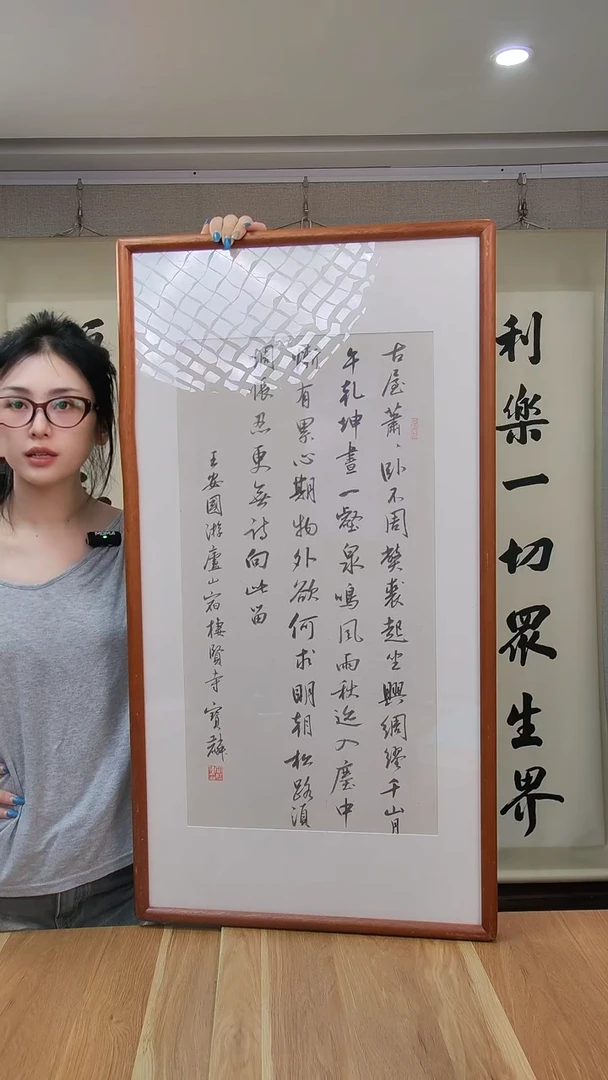 古屋蕭〻卧不周弊裘起坐興綢繆千山月
午乾坤晝一壑泉鳴風雨秋迹入塵中
慚有累心期物外欲何求明朝松路須
惆悵忍更無詩向此留
王安國游廬山宿棲賢寺 寶麟
利樂一切眾生界